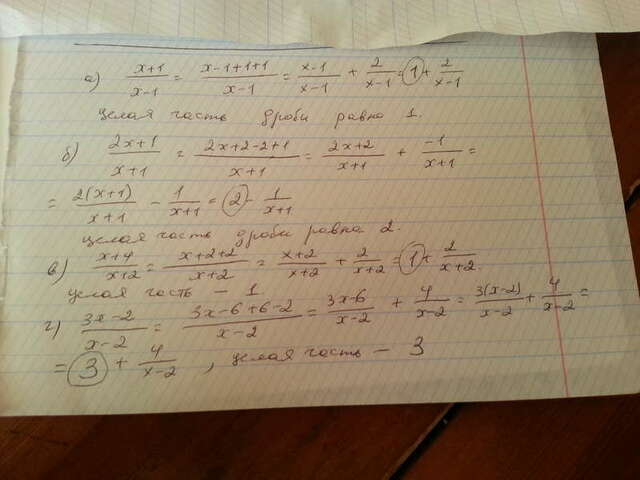 а) (x+1)/(x-1) = (x-1+1+1)/(x-1) = (x-1)/(x-1) + 2/(x-1) = 1 + 2/(x-1)
целая часть дроби равна 1.
б) (2x+1)/(x+1) = (2x+2-2+1)/(x+1) = (2x+2)/(x+1) + (-1)/(x+1) =
= 2(x+1)/(x+1) - 1/(x+1) = 2 - 1/(x+1)
целая часть дроби равна 2.
в) (x+4)/(x+2) = (x+2+2)/(x+2) = (x+2)/(x+2) + 2/(x+2) = 1 + 2/(x+2).
целая часть - 1
г) (3x-2)/(x-2) = (3x-6+6-2)/(x-2) = (3x-6)/(x-2) + 4/(x-2) = 3(x-2)/(x-2) + 4/(x-2) =
= 3 + 4/(x-2), целая часть - 3